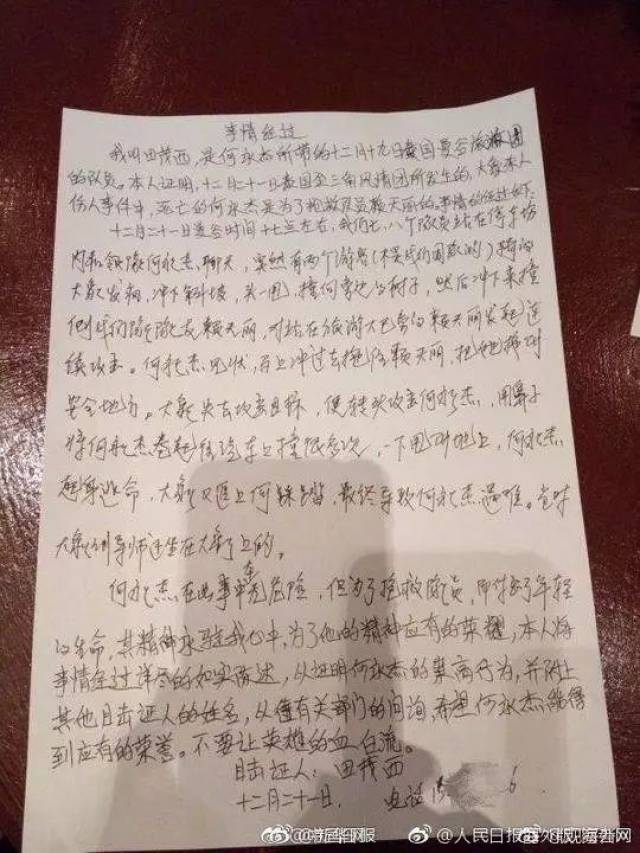 事情经过
我叫田茂西，是何永杰所带的十二月十九日泰国曼谷旅游团
的队员。本人证明，十二月二十一日泰国金三角风情园所发生的，大象杀人
伤人事件中，死亡的何永杰是为了抢救队员赖天丽的。事情的经过如下：
十二月二十一日曼谷时间十七点左右，我们七、八个队员站在停车场
内和领队何永杰聊天，突然有两个游客（不是我们团队的）骑的
大象发狂，冲下斜坡，头一甩，撞倒旁边的树子，然后冲下来撞
倒我们队队友赖天丽，对站在旅游大巴旁的赖天丽发起连
续攻击。何永杰见状，马上冲过去抱住赖天丽，把她推到
安全地方。大象失去攻击目标，便转头攻击何永杰，用鼻子
将何永杰卷起往汽车上撞很多次，一下甩到地上，何永杰
起身逃命，大象又追上何踩踏，最终导致何永杰遇难。当时
大象训导师还坐在大象上的。
何永杰在此事中无危险，但为了抢救队员，却付出了年轻
的生命，其精神永驻我心中，为了他的精神应有的荣耀，本人将
事情经过详尽的如实陈述，以证明何永杰的崇高行为，并附上
其他目击证人的姓名，以备有关部门的问询，希望何永杰能得
到应有的荣誉。不要让英雄的血白流。
目击证人：田茂西
十二月二十一日. 电话 15 6
@新华网
@人民日报海外版-海外网